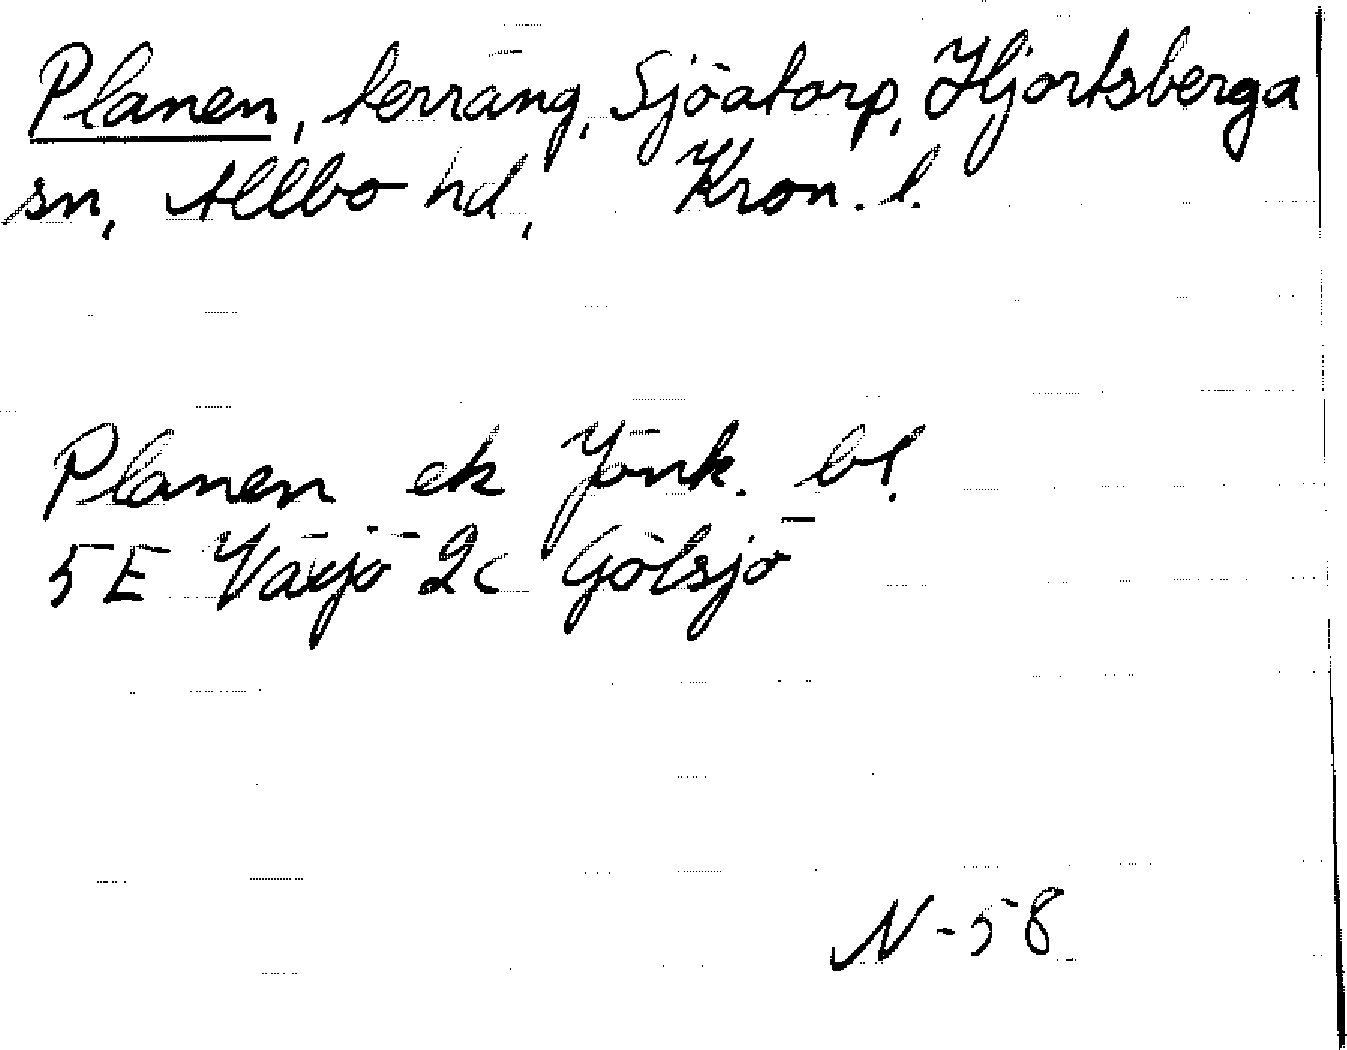 Planen, terräng, Sjöatorp, Hjortsberga
sn, Allbo hd, Kron. l.
Planen ek Jönk. bl.
5E Växjö 2c Gölsjö
N-58